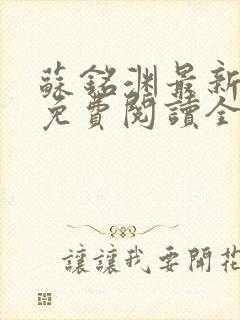 蘇銘渊最新
免費閱讀全
讓讓我要開花